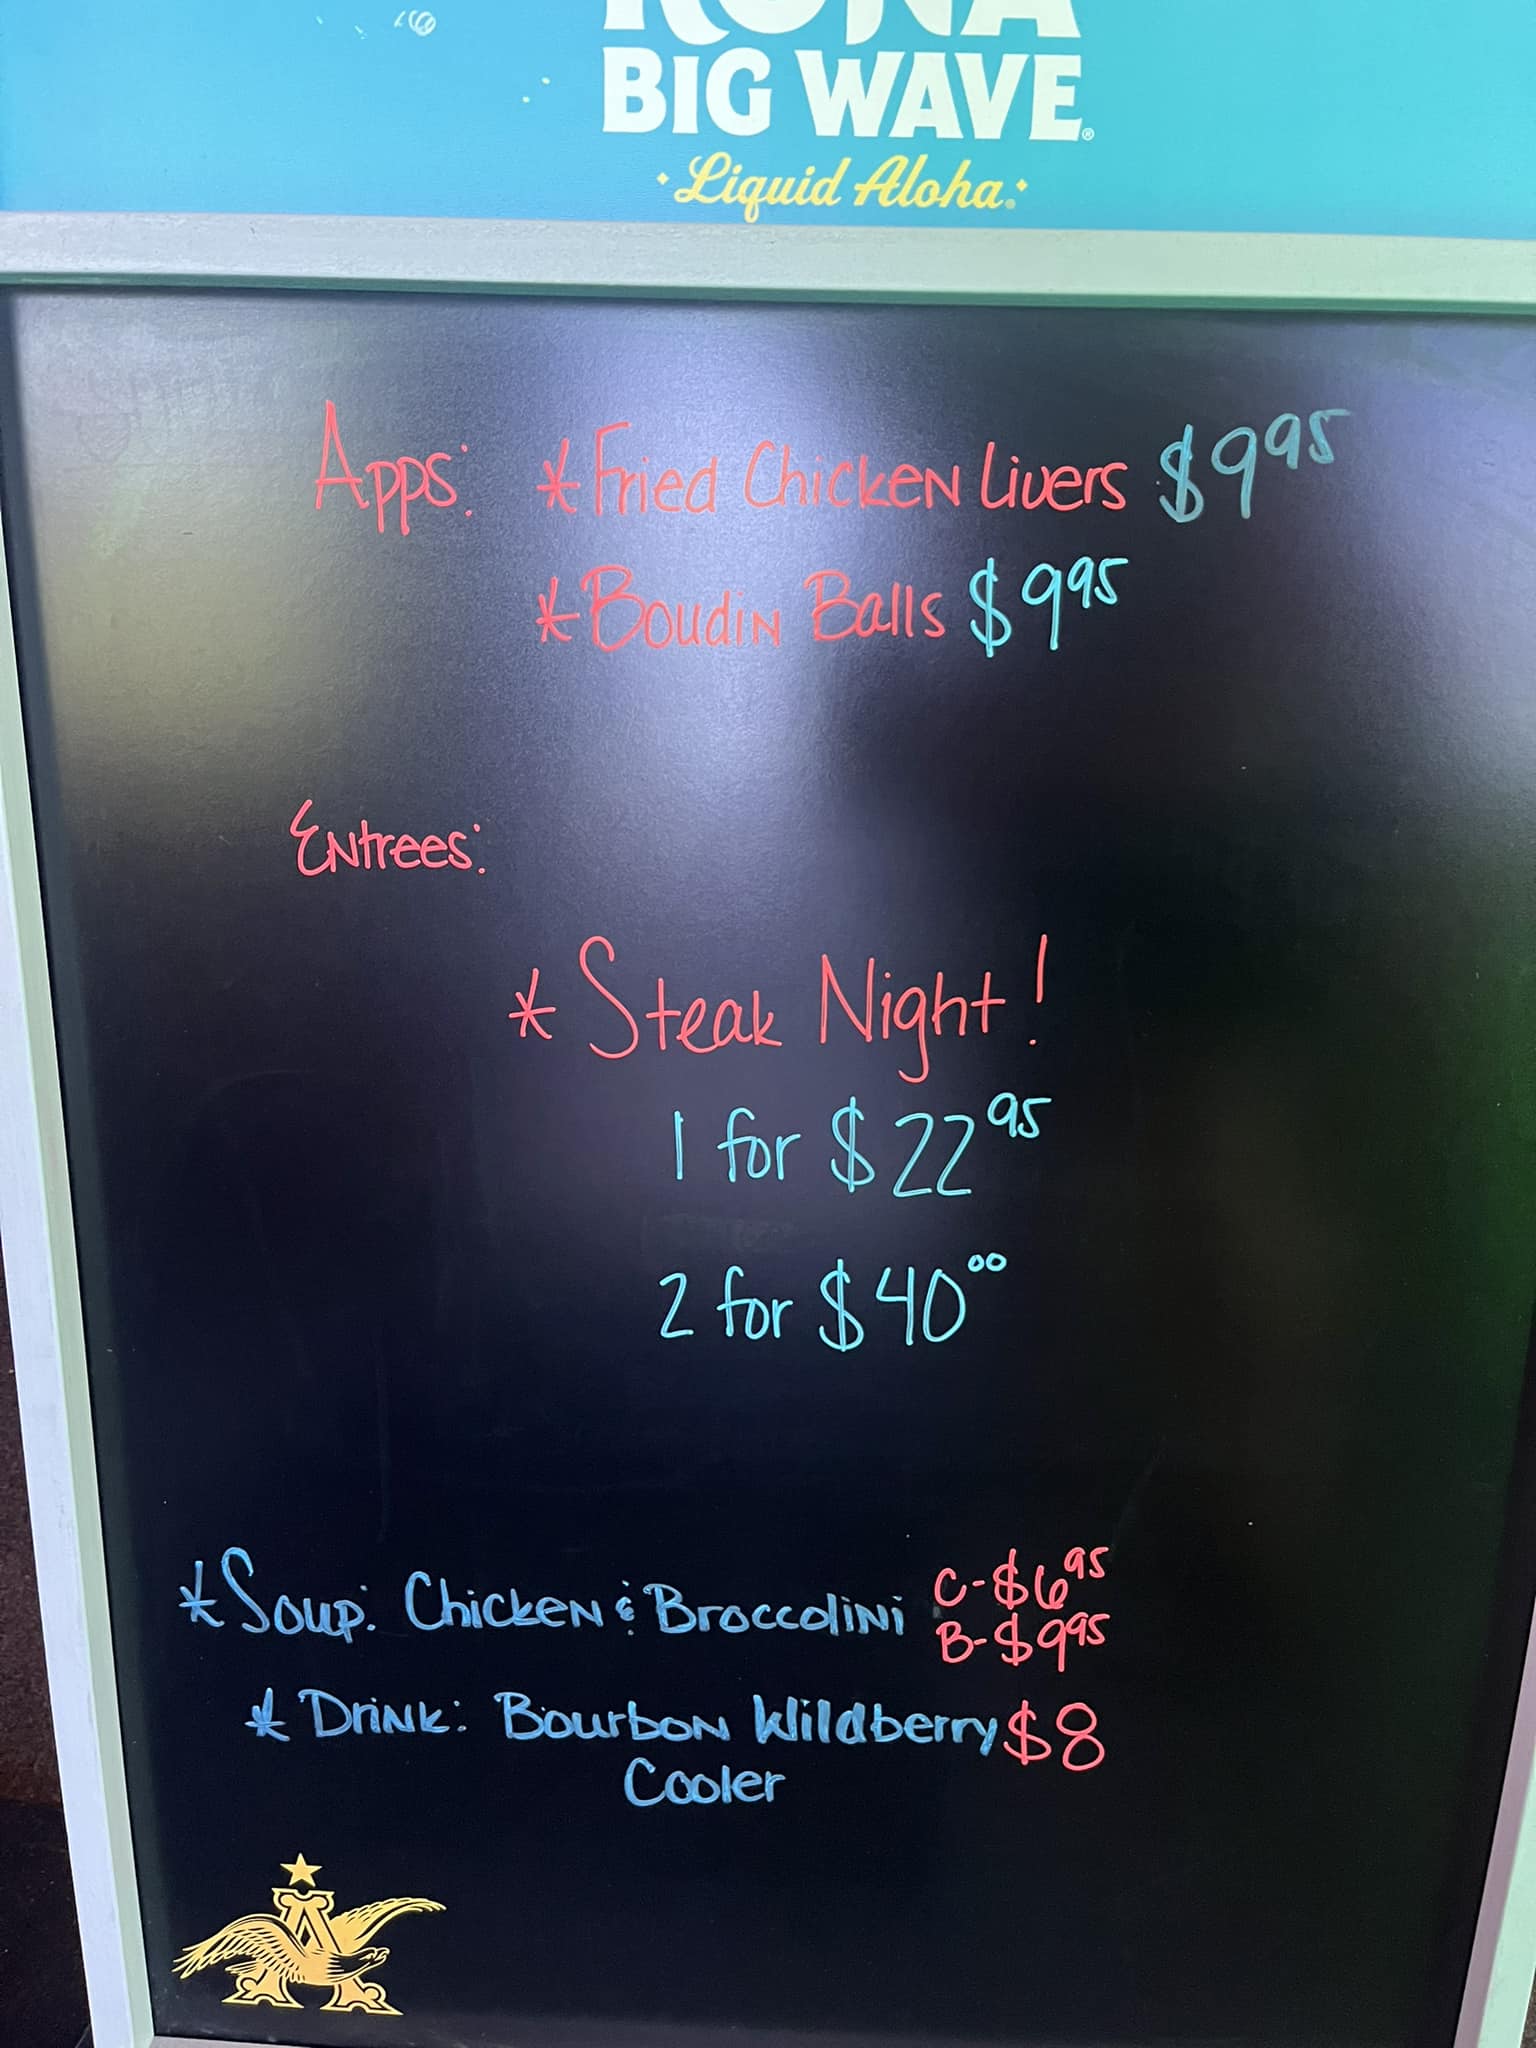 KONA
BIG WAVE®
Liquid Aloha.®
Apps: *Fried Chicken Livers $9⁹⁵
*Boudin Balls $9⁹⁵
Entrees:
* Steak Night!
1 for $22⁹⁵
2 for $40⁰⁰
*Soup: Chicken & Broccolini C-$6⁹⁵
B-$9⁹⁵
* Drink: Bourbon Wildberry $8
Cooler
A